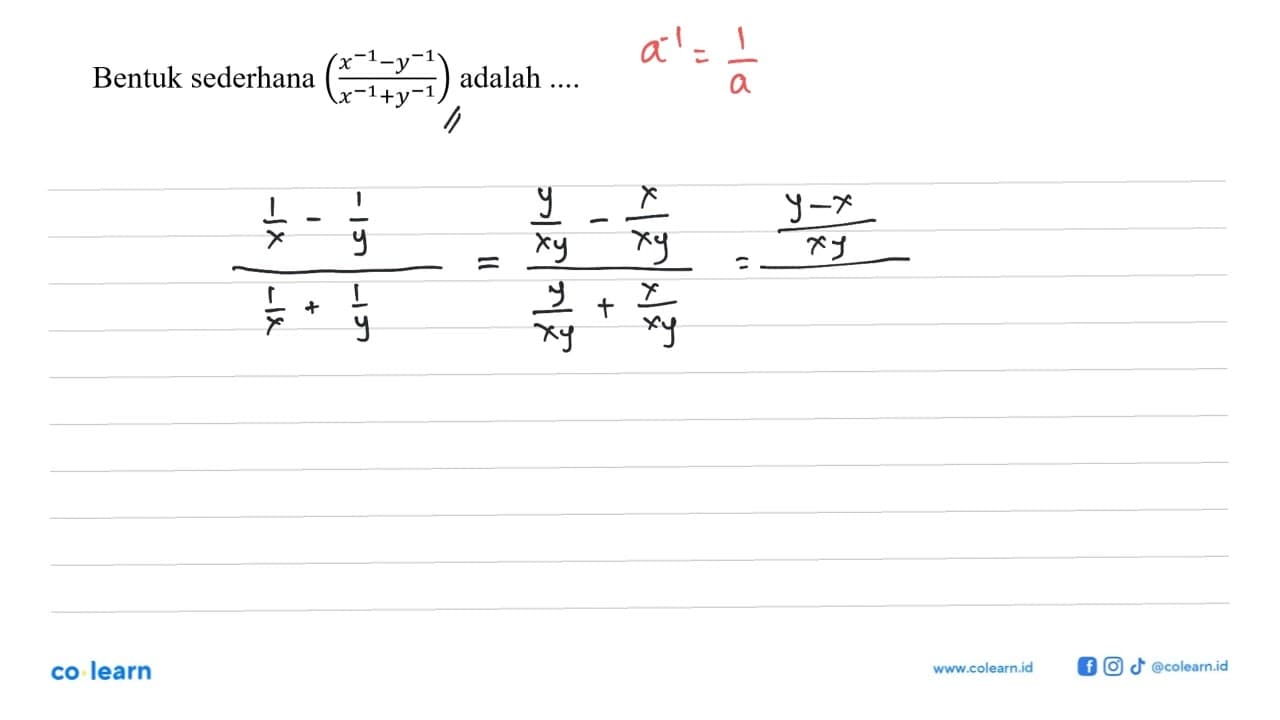 Bentuk sederhana (x⁻¹−y⁻¹ / x⁻¹+y⁻¹) adalah ....
a⁻¹ = 1/a
(1/x - 1/y) / (1/x + 1/y) = (y/xy - x/xy) / (y/xy + x/xy) = ((y-x)/xy) /
co learn
www.colearn.id
@colearn.id